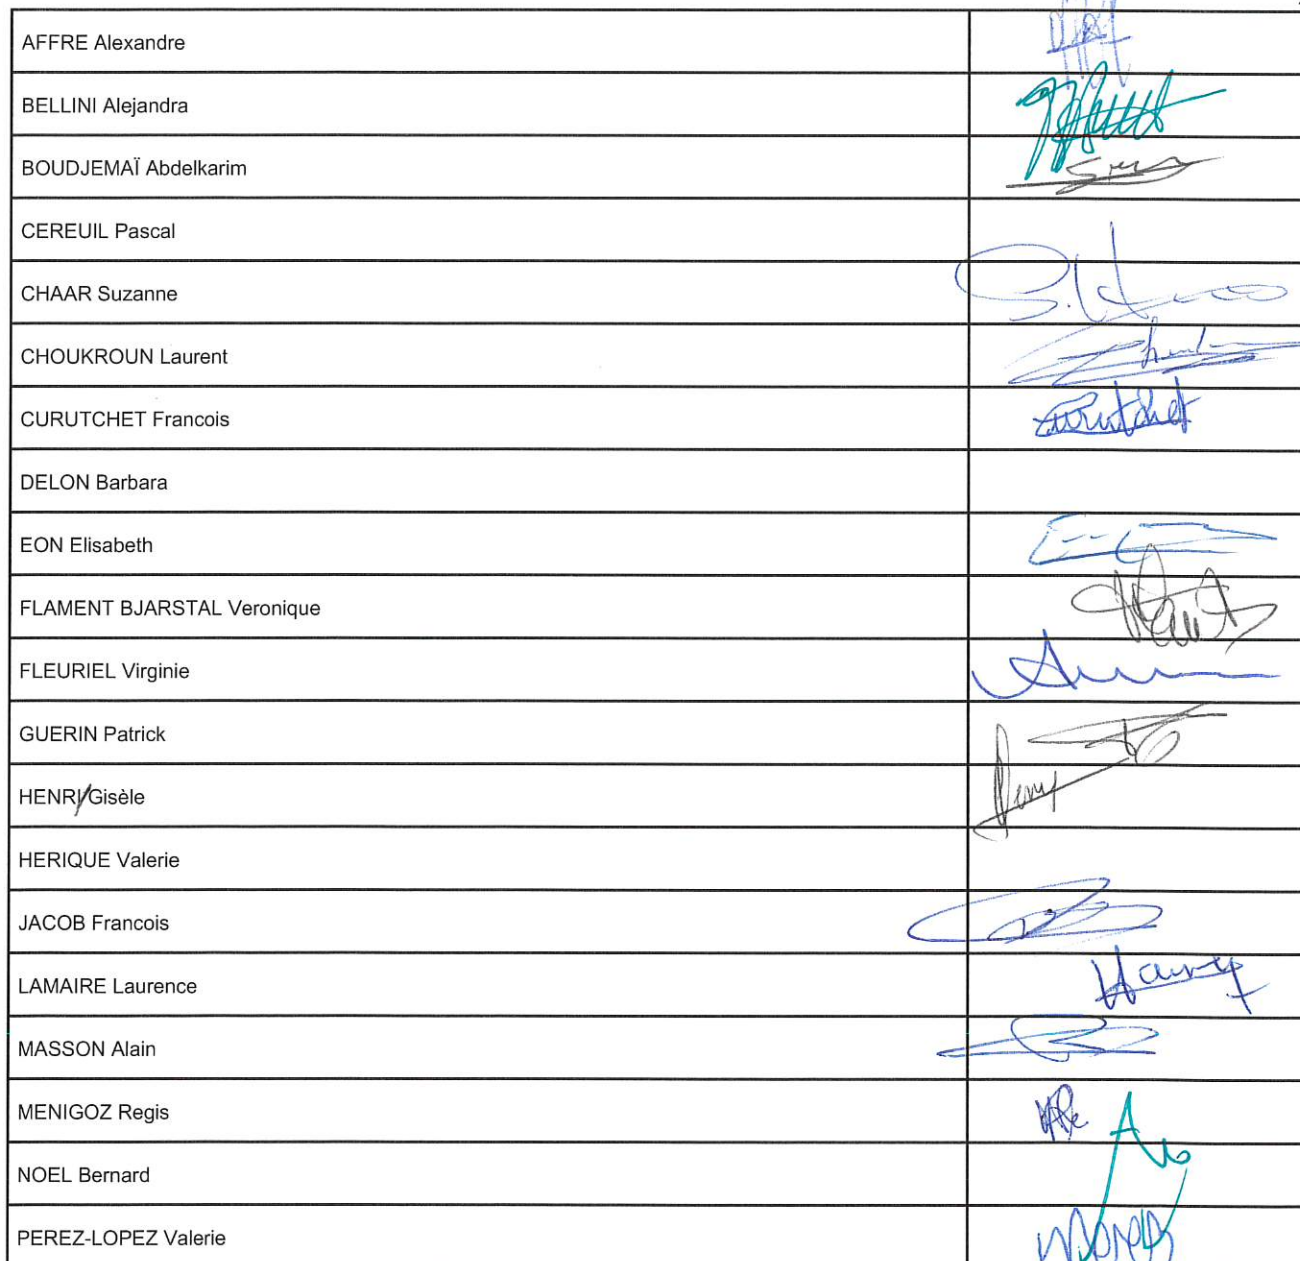 AFFRE Alexandre
BELLINI Alejandra
BOUDJEMAÏ Abdelkarim
CEREUIL Pascal
CHAAR Suzanne
CHOUKROUN Laurent
CURUTCHET Francois
Curutchet
DELON Barbara
EON Elisabeth
FLAMENT BJARSTAL Veronique
FLEURIEL Virginie
GUERIN Patrick
HENRI/Gisèle
HERIQUE Valerie
JACOB Francois
LAMAIRE Laurence
MASSON Alain
MENIGOZ Regis
NOEL Bernard
PEREZ-LOPEZ Valerie